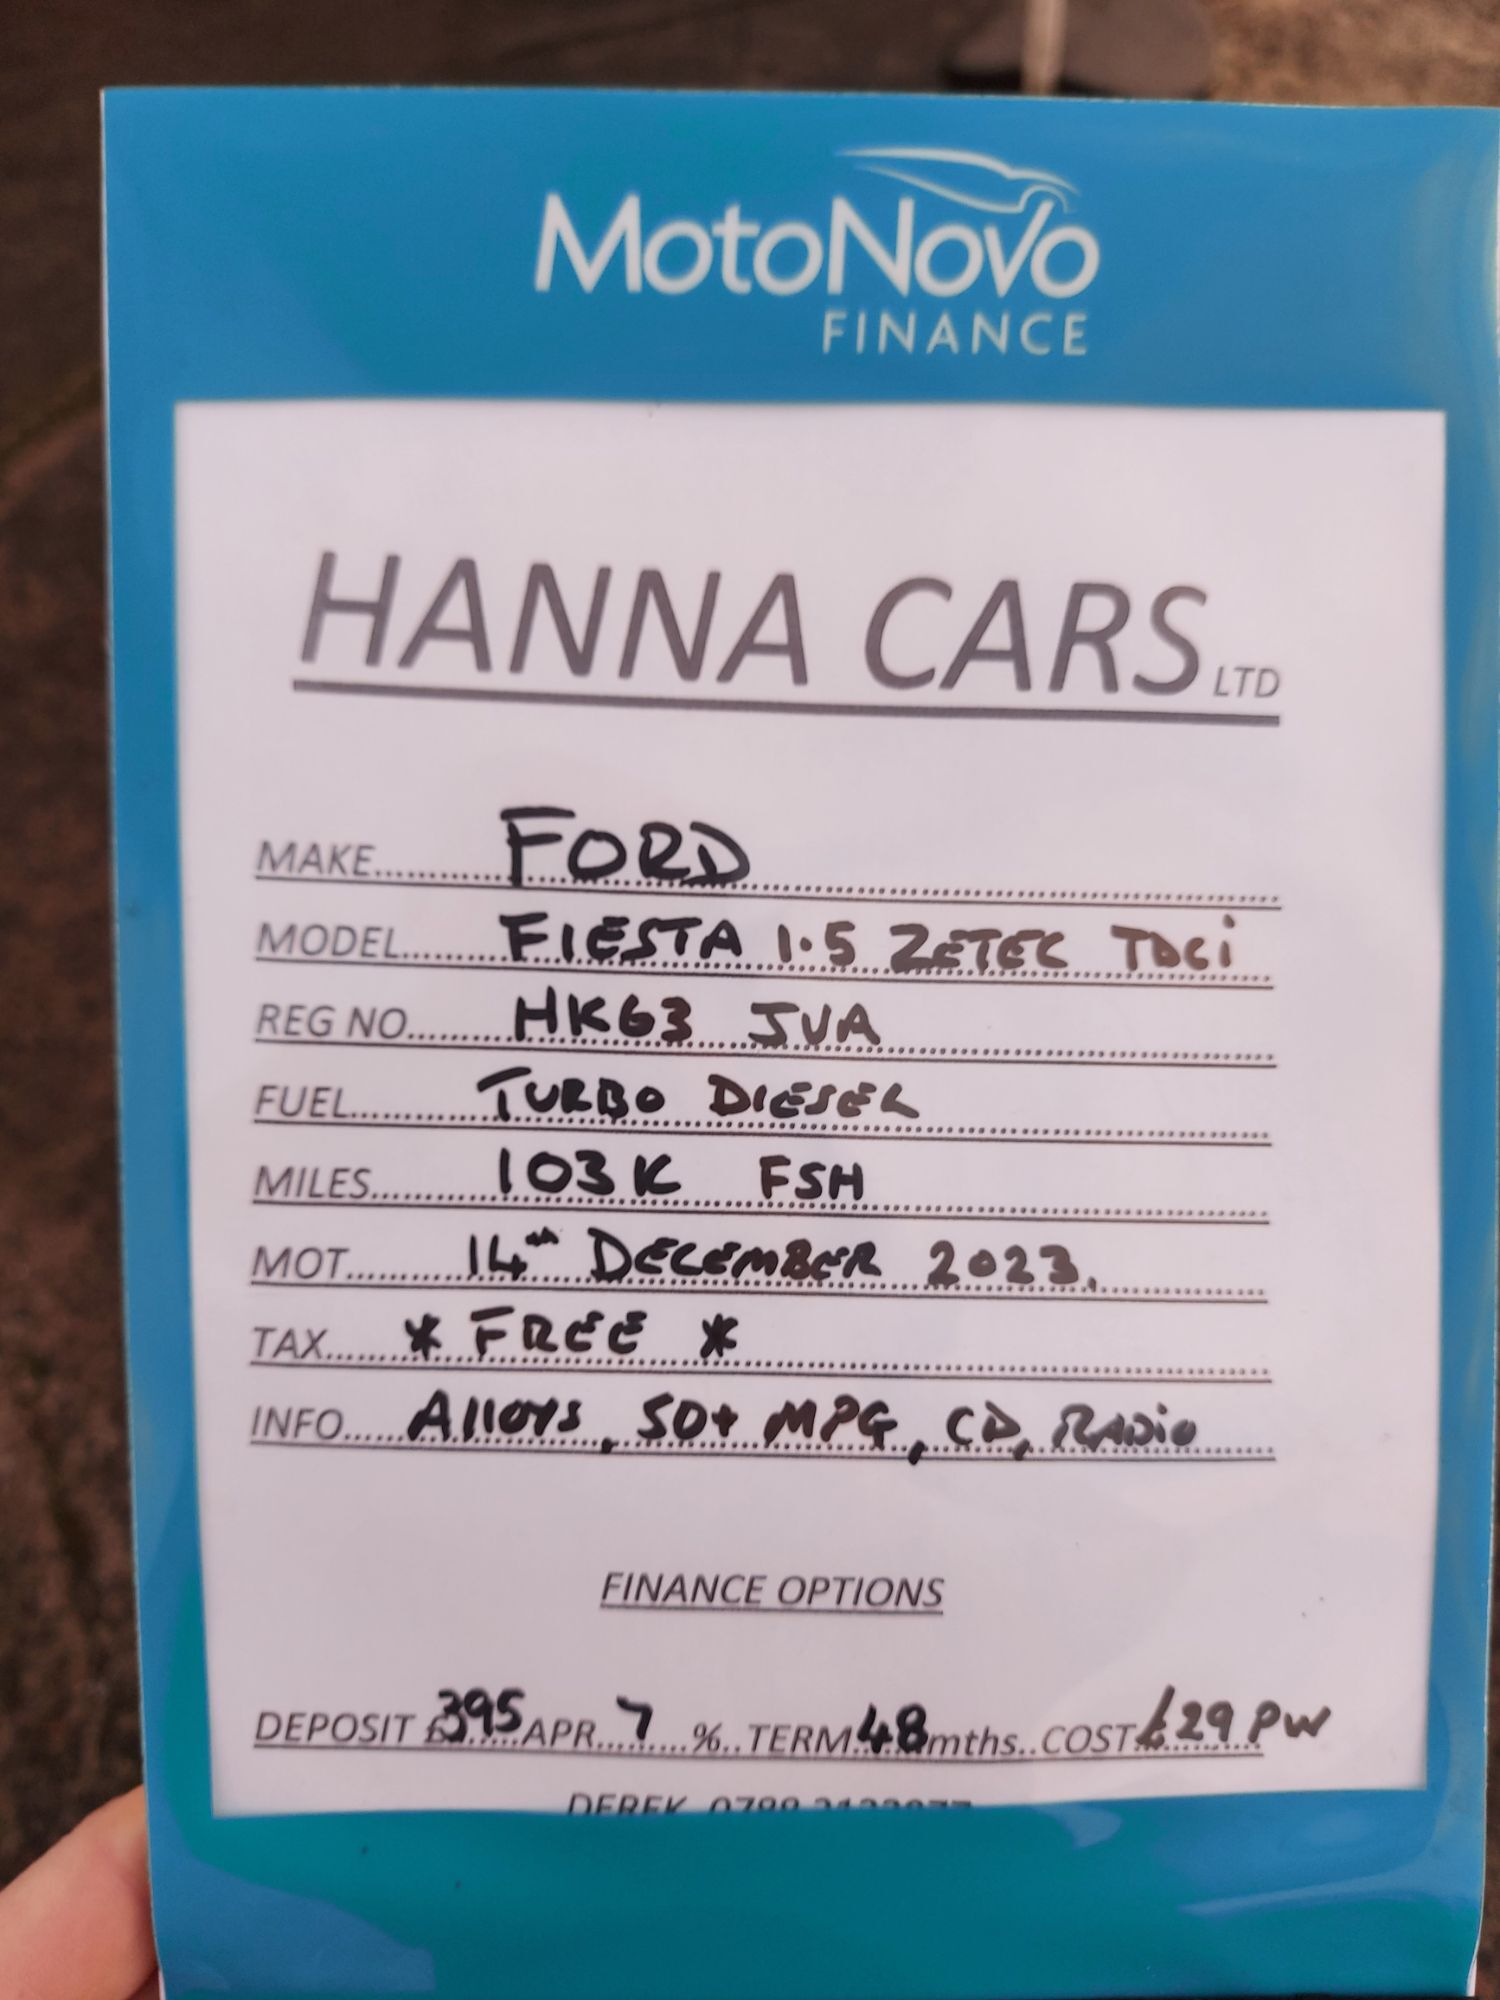 MotoNovo
FINANCE
HANNA CARS LTD
MAKE.......... FORD
MODEL....... FIESTA 1.5 ZETEC TDCi
REG NO....... HK63 JVA
FUEL.......... TURBO DIESEL
MILES......... 103K FSH
MOT.......... 14th DECEMBER 2023.
TAX....... * FREE *
INFO..... Alloys, 50+ MPG, CD, RADio
FINANCE OPTIONS
DEPOSIT £395 APR...7...%..TERM 48 mths..COST £29 PW
DEREK